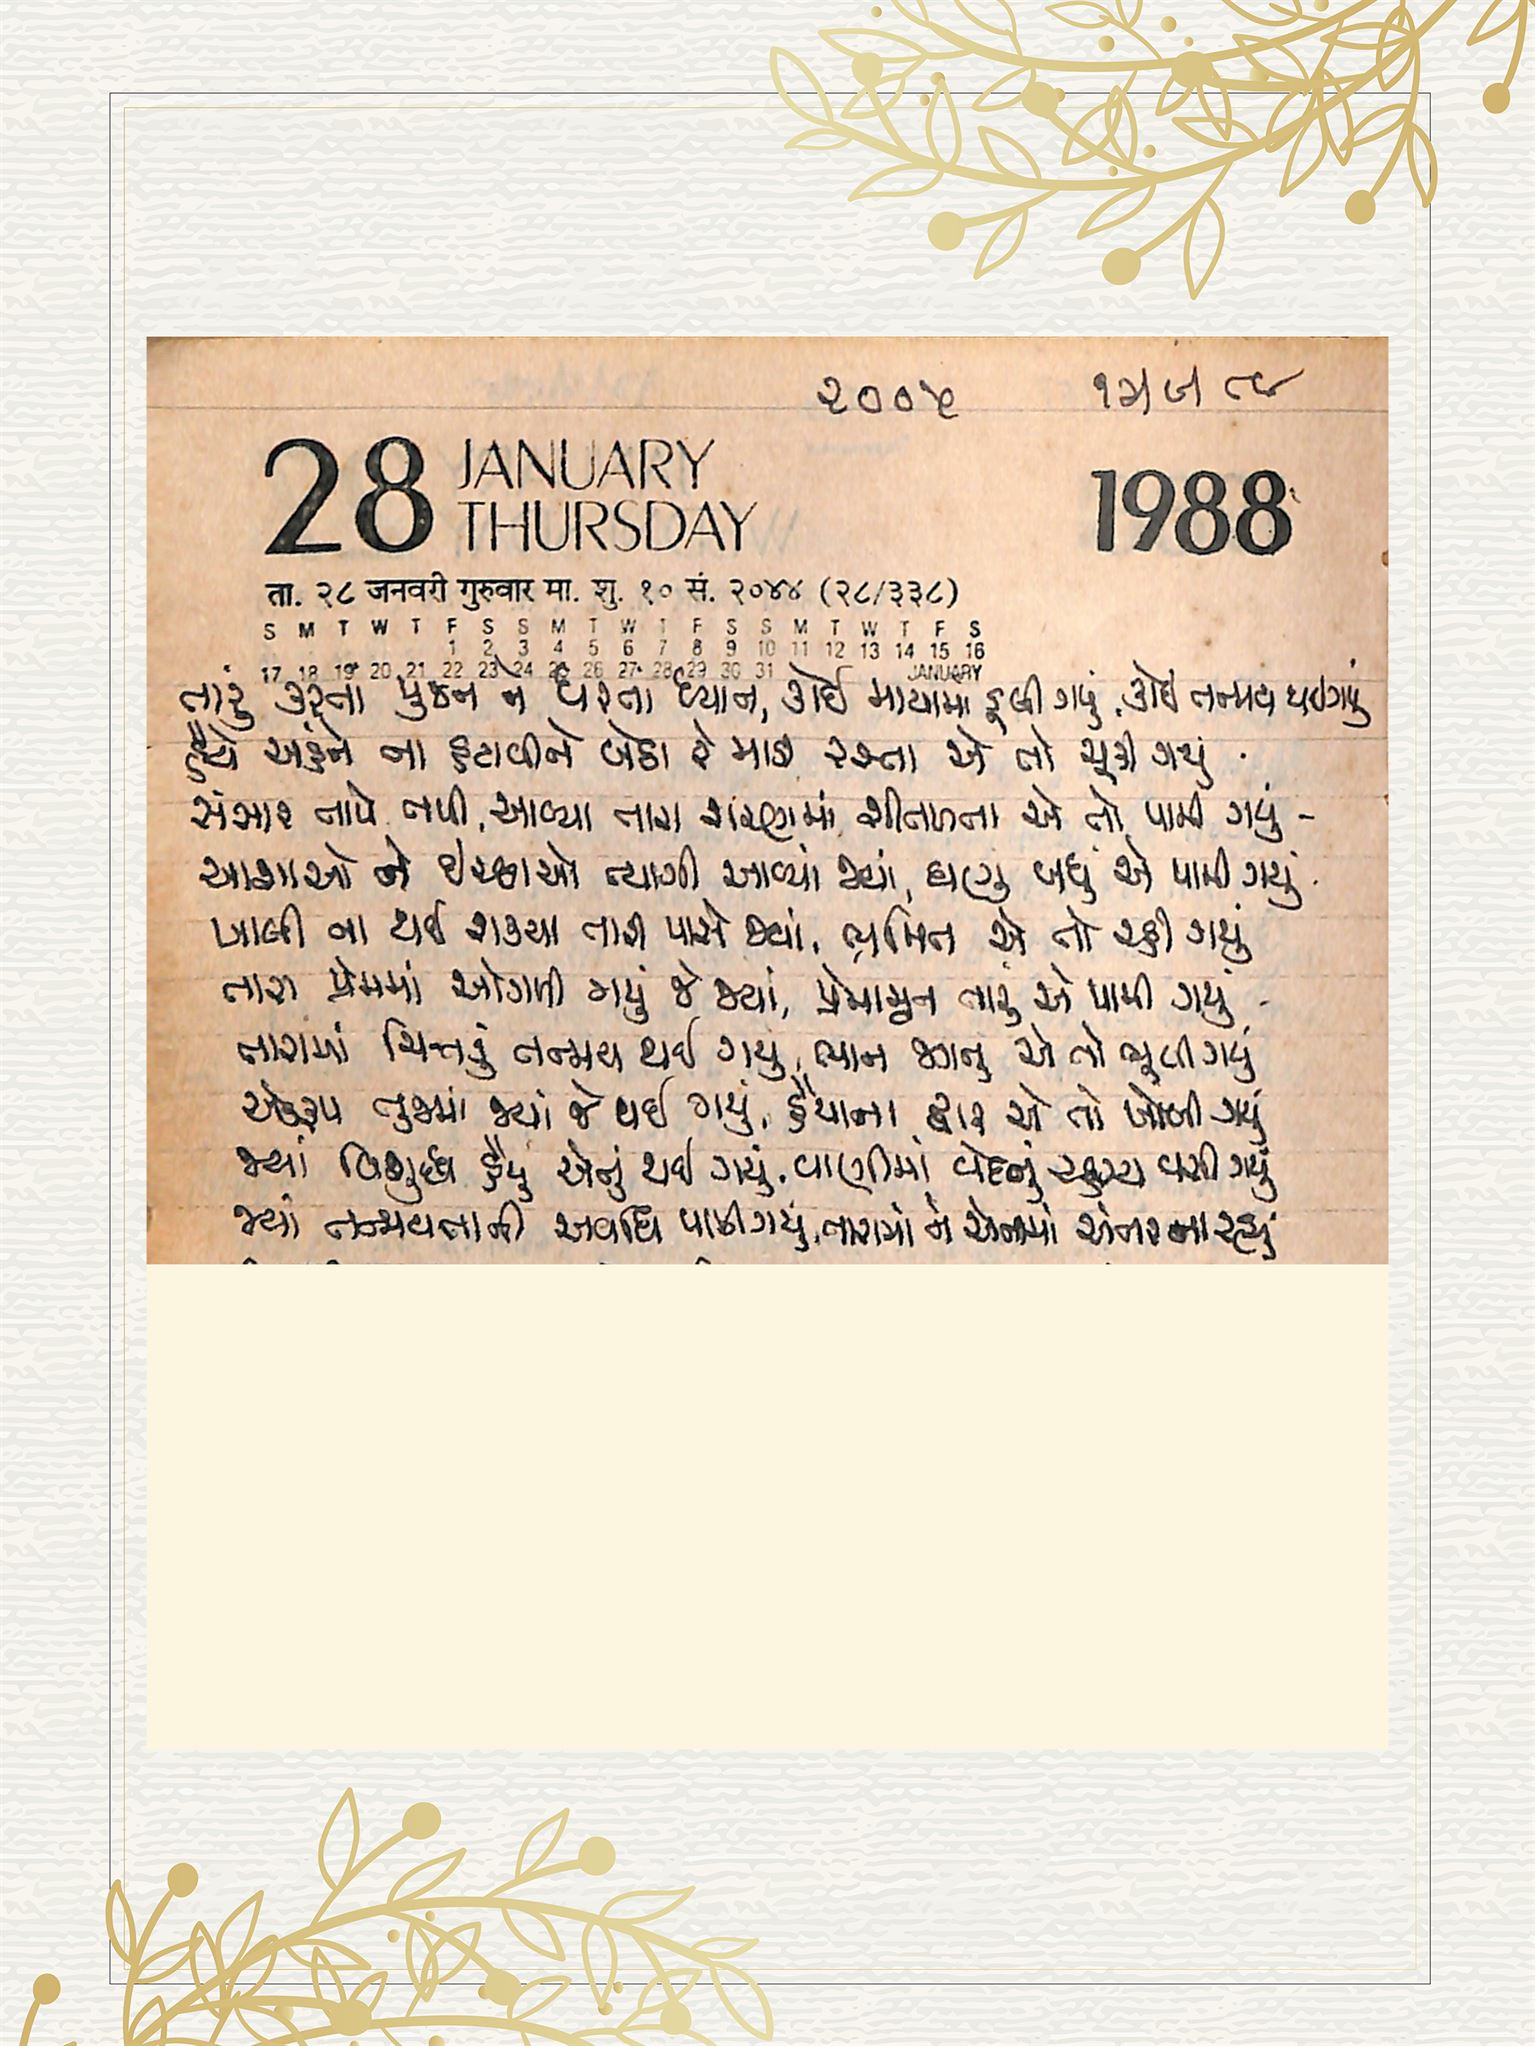 ૨૦૦૫
28 JANUARY THURSDAY 1988
ता. २८ जनवरी गुरुवार मा. शु. १० सं. २०४४ (२८/३३८)
S M T W T F S S M T W T F S S M T W T F S
1 2 3 4 5 6 7 8 9 10 11 12 13 14 15 16
17 18 19 20 21 22 23 24 25 26 27 28 29 30 31 JANUARY
તારું કરતા પુજન ને ધરતા ધ્યાન, કોઈ માયામાં ડૂબી ગયું, કોઈ તન્મય થઈ ગયું
હૈયે અહંને ના હટાવીને બેઠા રે માડી રસ્તા એ તો ચૂકી ગયું.
સંસાર તાપે તપી, આવ્યા તારા શરણમાં શીતળતા એ તો પામી ગયું -
આશાઓ ને ઇચ્છાઓ ત્યાગી આવ્યાં જ્યાં, ઘણુ બધું એ પામી ગયું.
ખાલી ના થઈ શક્યા તારી પાસે જ્યાં, ભ્રમિત એ તો રહી ગયું
તારા પ્રેમમાં ઓગળી ગયું જે જ્યાં, પ્રેમામૃત તારું એ પામી ગયું -
તારામાં ચિત્તડું તન્મય થઈ ગયું, ભાન જગનુ એ તો ભૂલી ગયું
એકરૂપ તુજમાં જ્યાં જે થઈ ગયું, હૈયાના દ્વાર એ તો ખોલી ગયું
જ્યાં વિશુદ્ધ હૈયુ એનું થઈ ગયું, વાણીમાં વેદનું રહસ્ય વસી ગયું
જ્યાં તન્મયતાની અવધિ પામી ગયું, તારામાં ને એનામાં અંતર ના રહ્યું